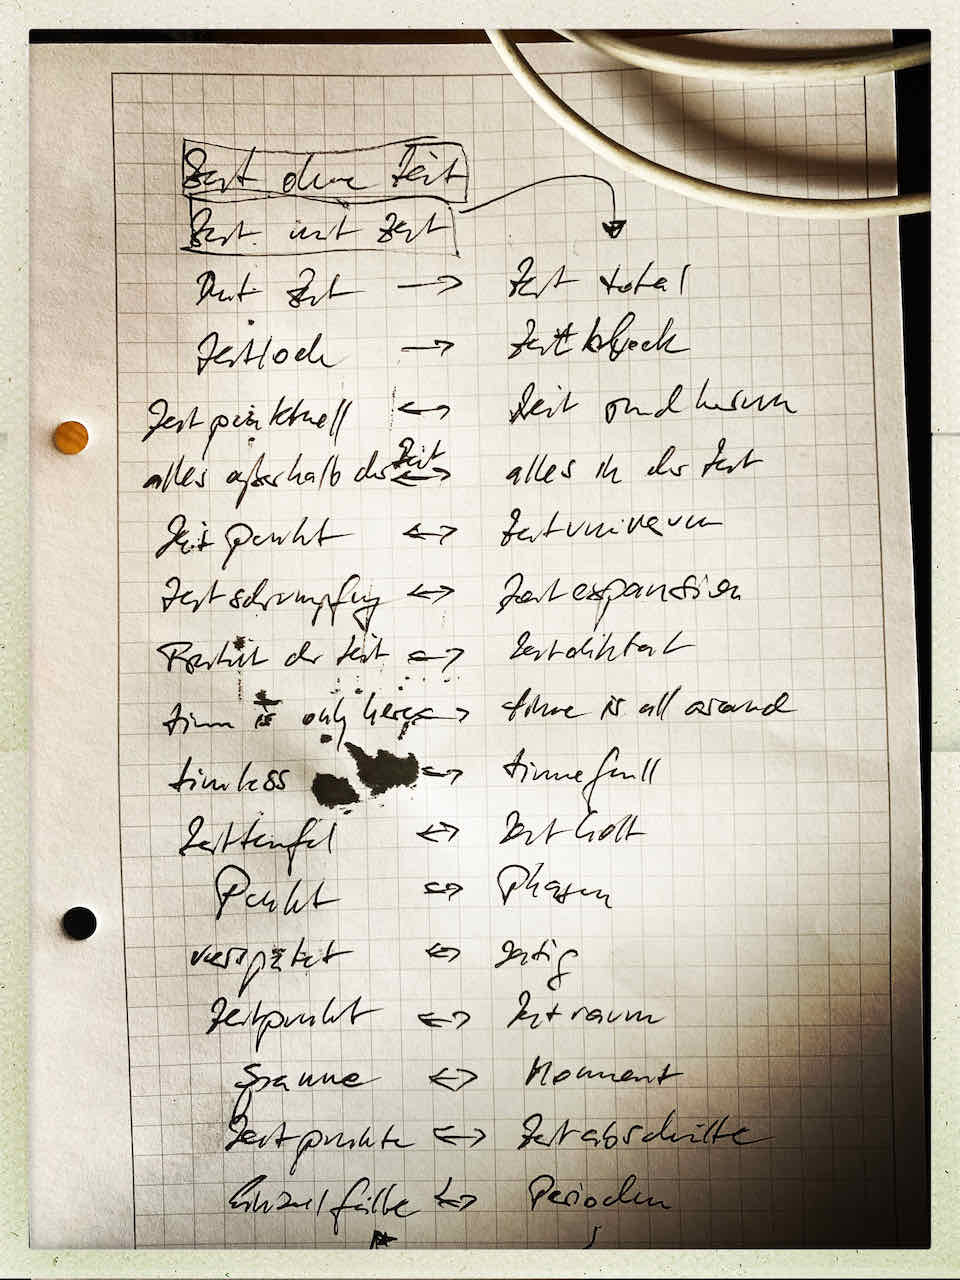 Zeit ohne Zeit
Zeit mit Zeit
Zeit → Zeit total
Zeitloch → Zeitblock
Zeit punktuell ↔ Zeit rund herum
alles außerhalb der Zeit ↔ alles in der Zeit
Zeitpunkt ↔ Zeituniversum
Zeitschrumpfung ↔ Zeitexpansion
der Zeit ↔ Zeitdiktat
time is only here ↔ time is all around
timeless ↔ timefull
Zeitteufel ↔ Zeit Gott
Punkt ↔ Phasen
verspätet ↔ zeitig
Zeitpunkt ↔ Zeitraum
Spanne ↔ Moment
Zeitpunkte ↔ Zeitabschnitte
Einzelfälle ↔ Perioden